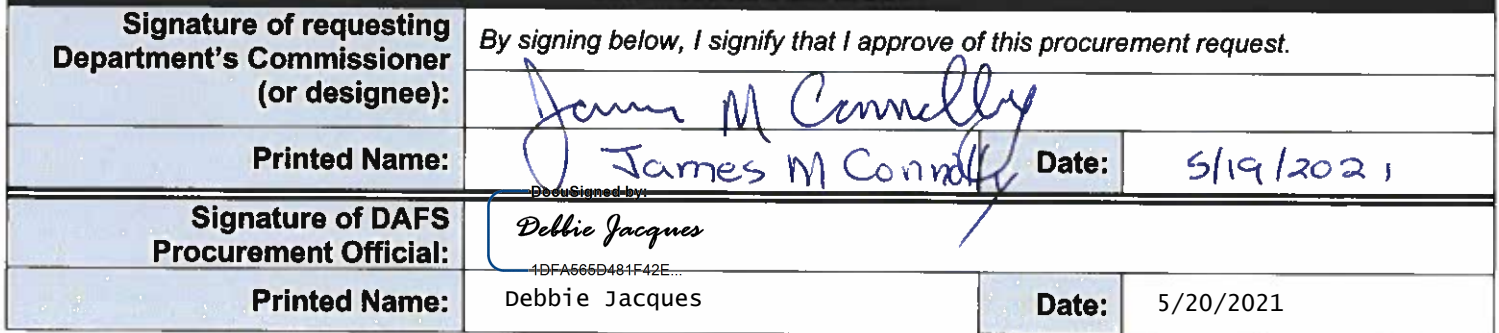 Signature of requesting
Department's Commissioner
(or designee):
By signing below, I signify that I approve of this procurement request.
James M Connolly
Printed Name:
James M Connolly
Date:
5/19/2021
Signature of DAFS
Procurement Official:
DocuSigned by:
Debbie Jacques
1DFA565D481F42E...
Printed Name:
Debbie Jacques
Date:
5/20/2021